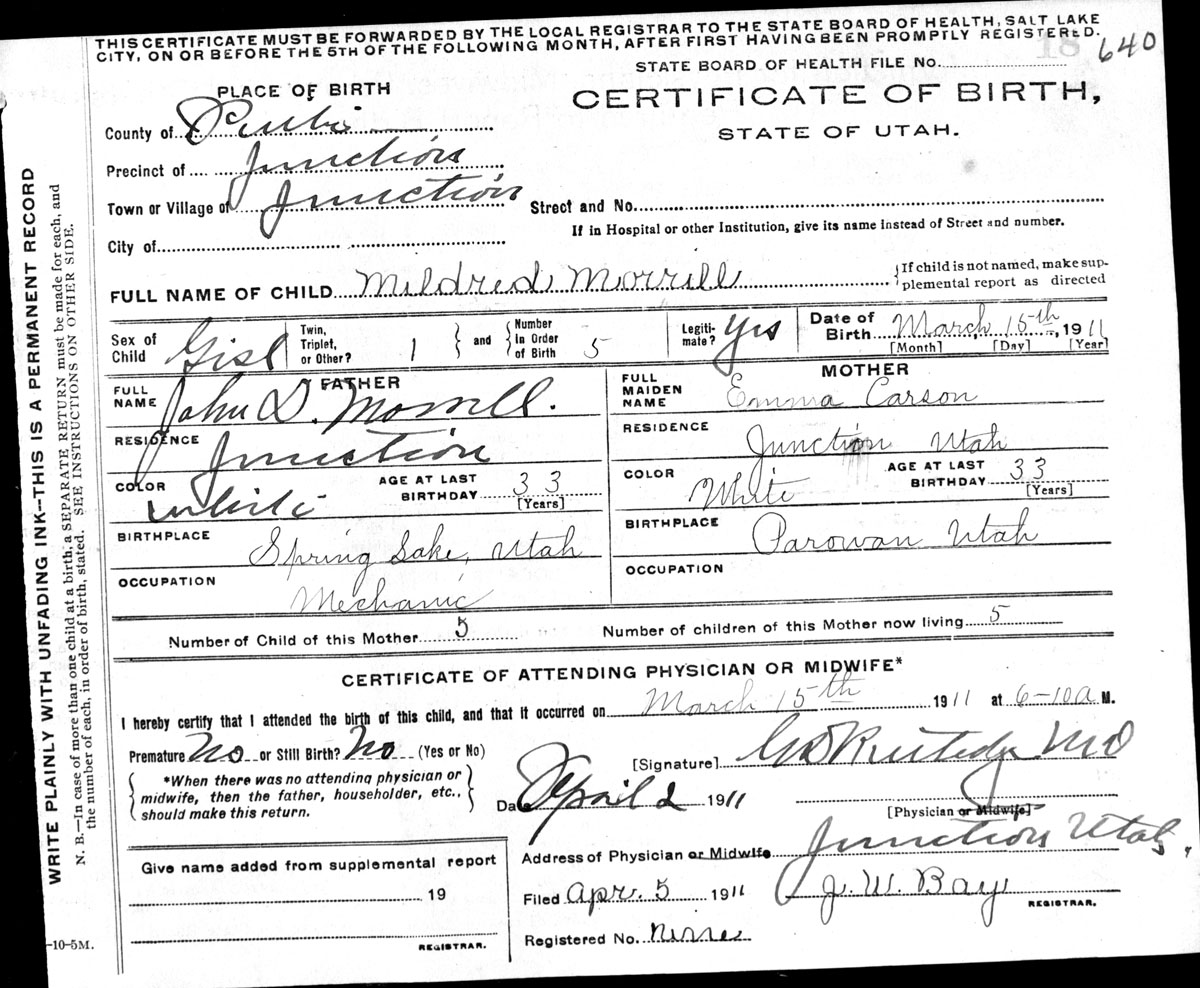 THIS CERTIFICATE MUST BE FORWARDED BY THE LOCAL REGISTRAR TO THE STATE BOARD OF HEALTH, SALT LAKE
CITY, ON OR BEFORE THE 5TH OF THE FOLLOWING MONTH, AFTER FIRST HAVING BEEN PROMPTLY REGISTERED.
18 640
STATE BOARD OF HEALTH FILE NO.
PLACE OF BIRTH
CERTIFICATE OF BIRTH,
STATE OF UTAH.
County of Piute
Precinct of Junction
Town or Village of Junction
Street and No.
If in Hospital or other Institution, give its name instead of Street and number.
City of
FULL NAME OF CHILD Mildred Morrill
If child is not named, make sup-
plemental report as directed
Sex of Child Girl
Twin, Triplet, or Other? 1 and Number in Order of Birth 5
Legiti-mate? Yes
Date of Birth March 15th, 1911
[Month] [Day] [Year]
FATHER
FULL NAME John D. Morrill.
RESIDENCE Junction
COLOR White
AGE AT LAST BIRTHDAY 33
[Years]
BIRTHPLACE Spring Lake, Utah
OCCUPATION Mechanic
MOTHER
FULL MAIDEN NAME Emma Carson
RESIDENCE Junction Utah
COLOR White
AGE AT LAST BIRTHDAY 33
[Years]
BIRTHPLACE Parowan Utah
OCCUPATION
Number of Child of this Mother 5
Number of children of this Mother now living 5
CERTIFICATE OF ATTENDING PHYSICIAN OR MIDWIFE*
I hereby certify that I attended the birth of this child, and that it occurred on March 15th 1911 at 6-10a M.
Premature No or Still Birth? No (Yes or No)
*When there was no attending physician or
midwife, then the father, householder, etc.,
should make this return.
[Signature] MD
Date April 2 1911
[Physician or Midwife]
Address of Physician or Midwife Junction Utah,
Give name added from supplemental report
19
REGISTRAR.
Filed Apr. 5 1911 J. W. Bay
REGISTRAR.
Registered No. Nine
WRITE PLAINLY WITH UNFADING INK--THIS IS A PERMANENT RECORD
N. B.—In case of more than one child at a birth, a SEPARATE RETURN must be made for each, and
the number of each, in order of birth, stated. SEE INSTRUCTIONS ON OTHER SIDE.
-10-5M.